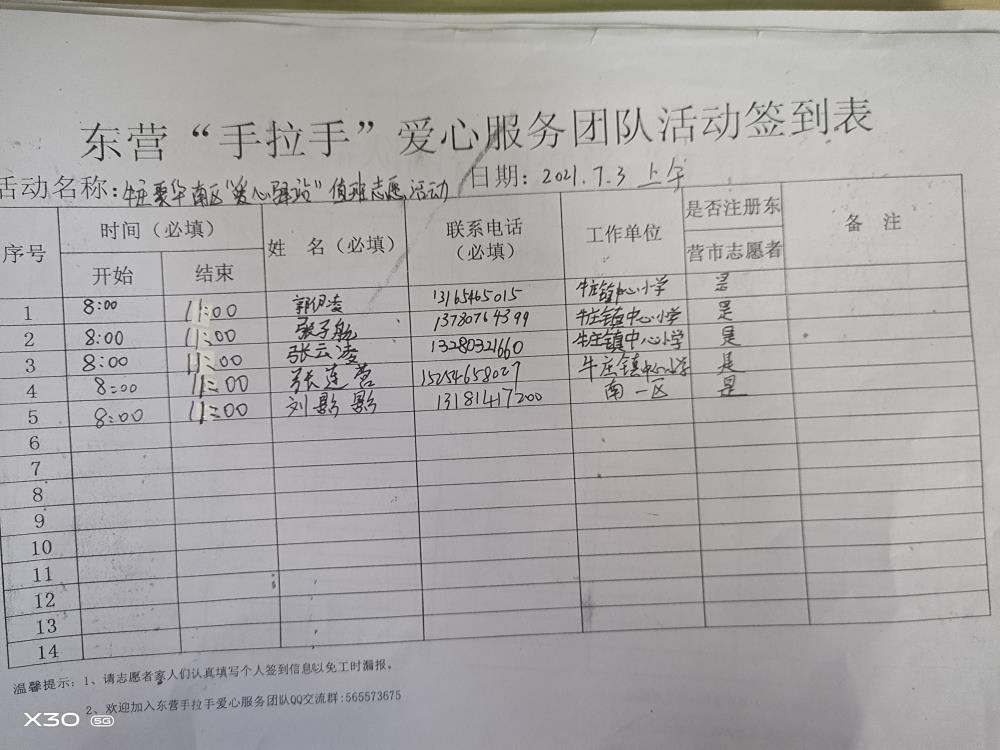 东营“手拉手”爱心服务团队活动签到表
活动名称:牛庄裂华南区“爱心驿站”值班志愿活动 日期: 2021.7.3 上午
序号 时间(必填) 姓 名(必填) 联系电话(必填) 工作单位 是否注册东营市志愿者 备 注
开始 结束
1 8:00 11:00 13165465015 牛庄镇中心小学 是
2 8:00 11:00 张子勉 13780764399 牛庄镇中心小学 是
3 8:00 11:00 张云凌 13280321660 牛庄镇中心小学 是
4 8:00 11:00 张连营 15254658027 牛庄镇中心小学 是
5 8:00 11:00 刘影影 13181417200 南一区 是
6
7
8
9
10
11
12
13
14
温馨提示: 1、请志愿者家人们认真填写个人签到信息以免工时漏报。
2、欢迎加入东营手拉手爱心服务团队QQ交流群:565573675
X30 5G